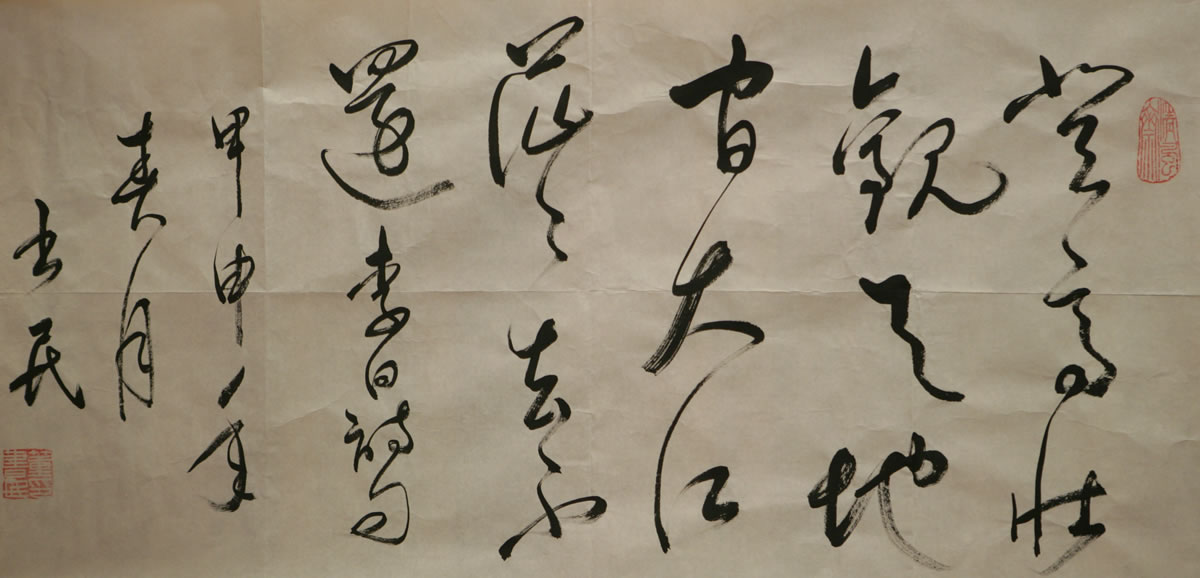 登高壮
觀天地
間大江
茫茫去不
還李白詩句
甲申年
春月
書民